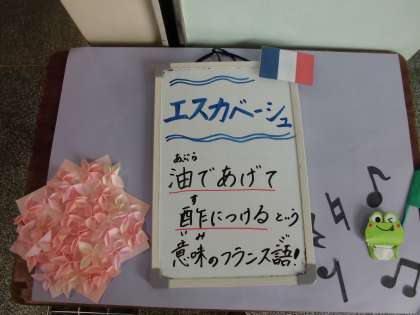 エスカベーシュ
あぶら
油であげて
す
酢につけるという
いみ ご
意味のフランス語!